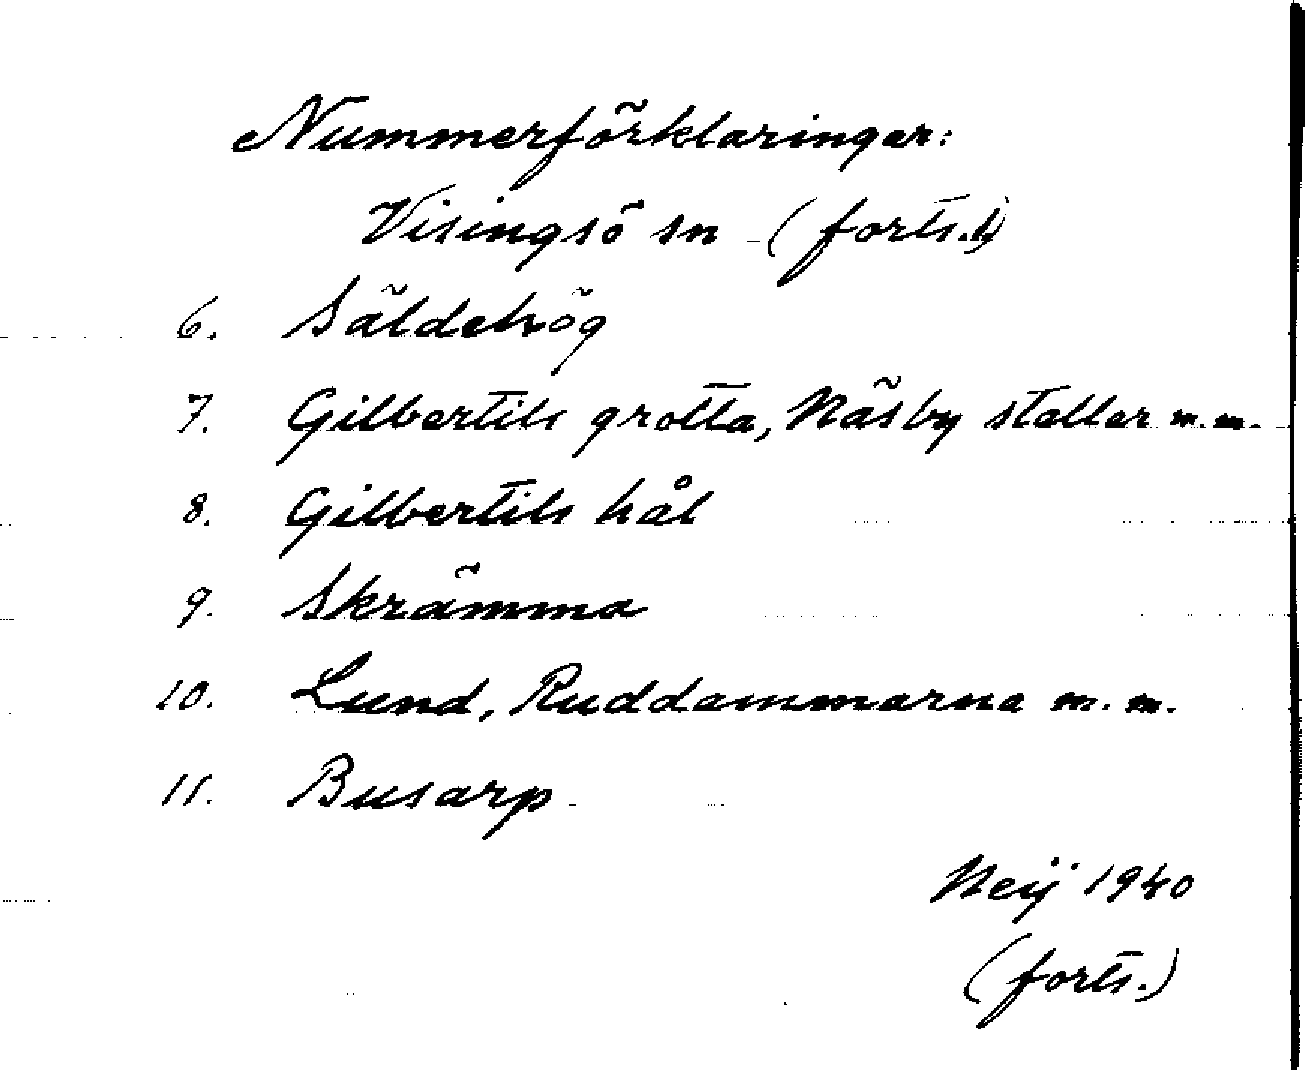 Nummerförklaringar:
Visingsö sn (forts.)
6. Säldehög
7. Gilbertils grotta, Näsby stallar m.m.
8. Gilbertils hål
9. Skrämma
10. Lund, Ruddammarna m.m.
11. Busarp
Neij 1940
(forts.)